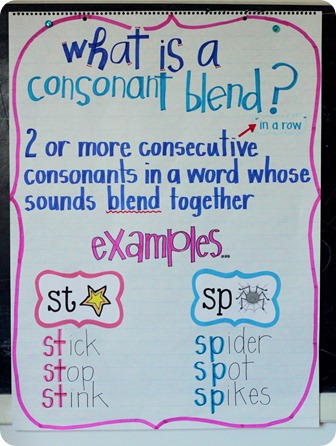 what is a
consonant blend?
"in a row"
2 or more consecutive
consonants in a word whose
sounds blend together
examples...
st
sp
stick
stop
stink
spider
spot
spikes